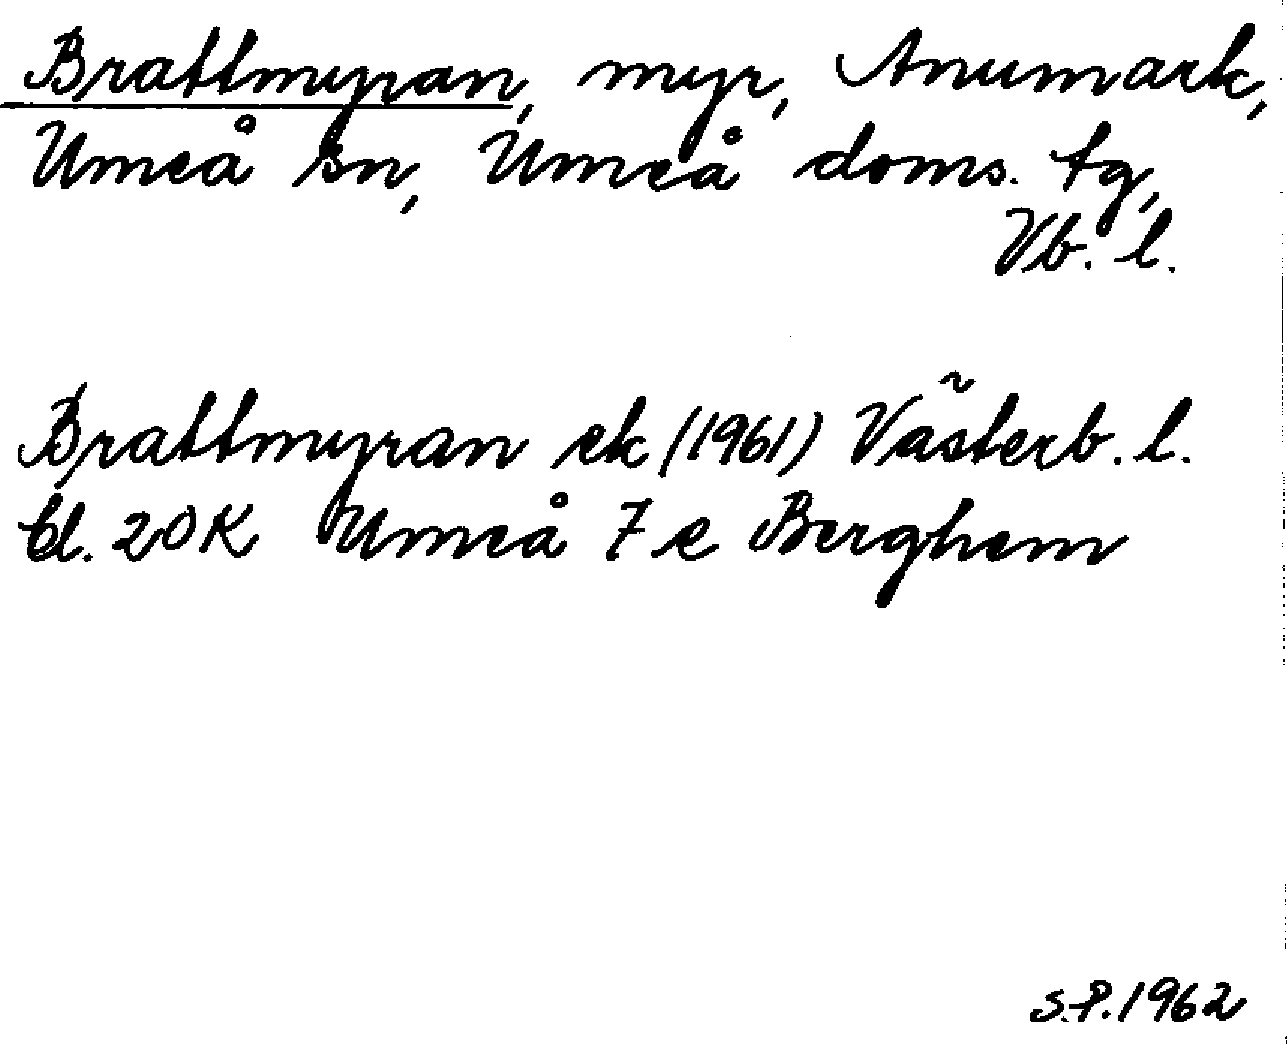 Brattmyran, myr, Anumark,
Umeå sn, Umeå doms. tg,
Vb. l.
Brattmyran ek (1961) Västerb. l.
bl. 20K Umeå 7 e Berghem
S.P. 1962